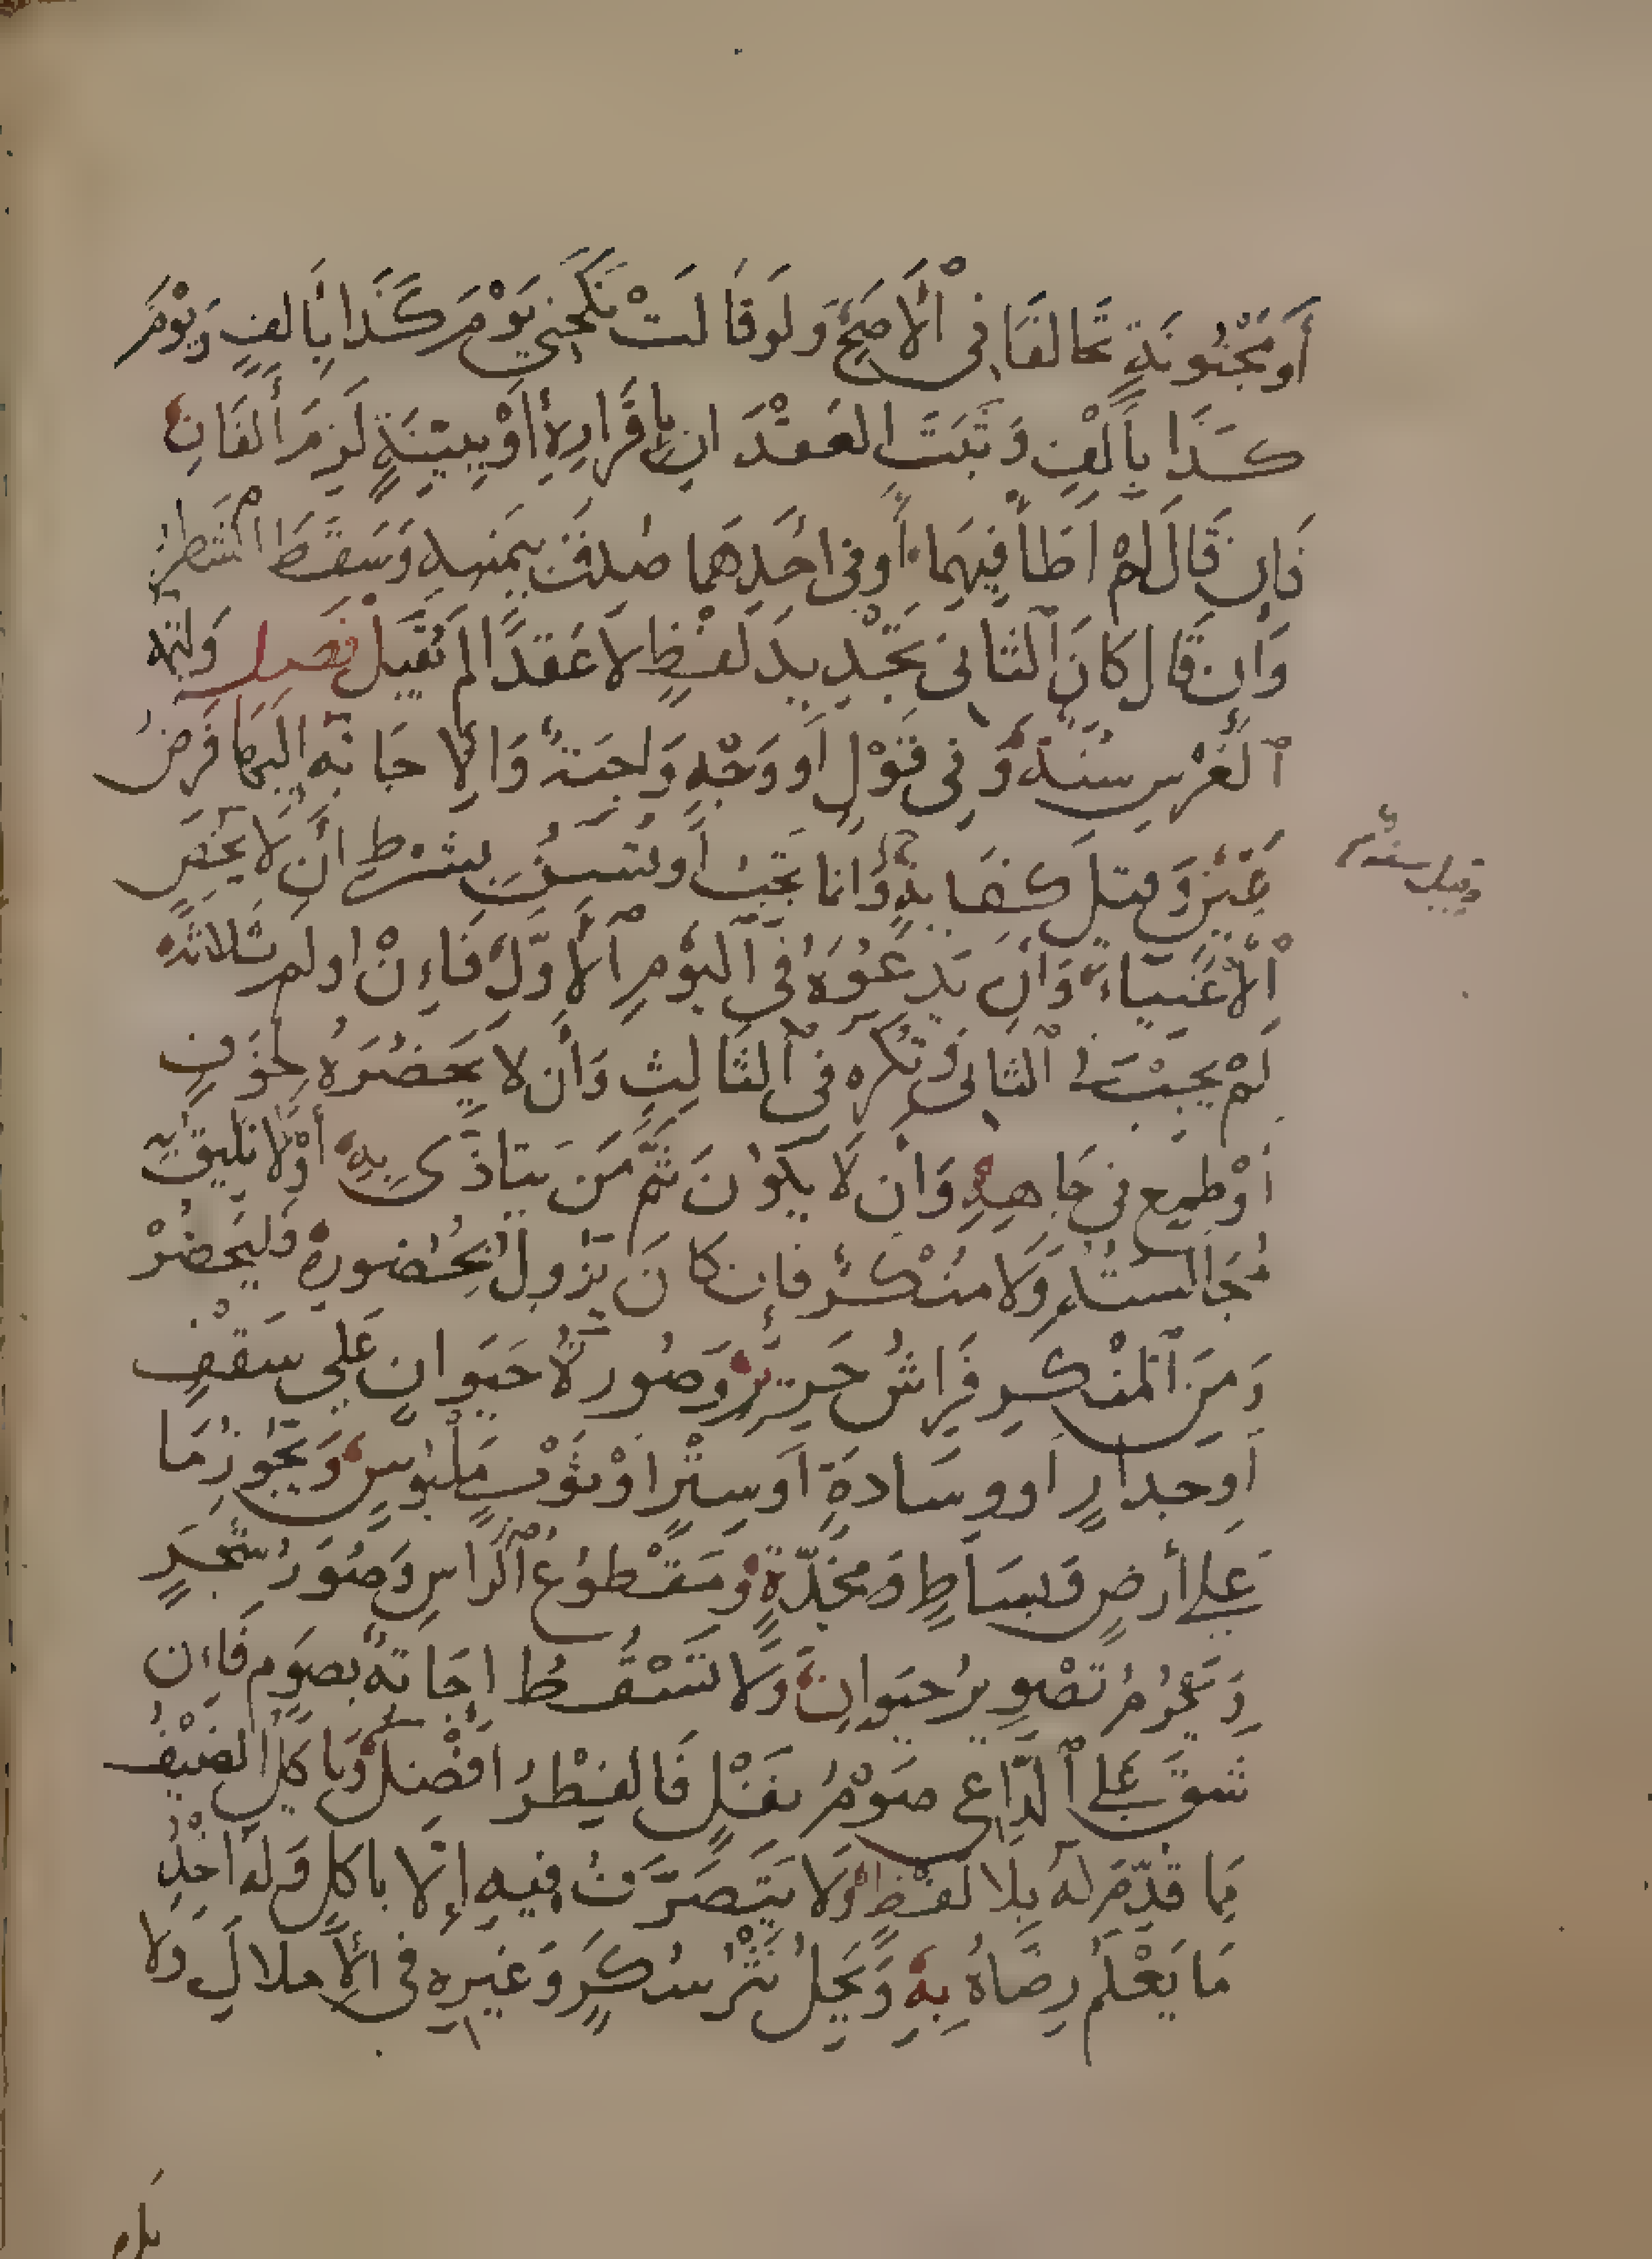 أَو مَجْنُونَةٍ تَحَالَفَا فِى ٱلْأَصَحِّ وَلَو قَالَتْ نَكَحَنِي يَوْمَ كَذَا بِأَلفٍ وَيَوْمَ
كَذَا بِأَلْفٍ وَثَبَتَ العَقْدَانِ بِإِقْرَارِهِ أَوْ بِبَيِّنَةٍ لَزِمَ أَلفَانِ
فَإِن قَالَ لَمْ اَطَأْ فِيهِمَا أَو فِى اَحَدِهِمَا صُدِقَ بِيَمِينِهِ وَسَقَطَ الشَّطْرُ
وَإِن قَالَ كَانَ ٱلثَّانى تَجْدِيدَ لَفْظٍ لَا عَقدًا لَم يُقْبَلْ فَصل وَلِيمَة
ٱلْعُرْسِ سُنَّةٌ وَفِى قَوْلٍ أَو وَجْهٍ وَاجِبَةٌ وَالإِجَابَة إِلَيهَا فَرضُ
عَيْنٍ وَقِيلَ كِفَايَةٍ وَإِنما تَجِبُ أَو تُسَنُّ بِشَرْطِ أَنْ لَا يَخُصَّ
ٱلْأَغْنِيَاءَ وَأَن يَدعُوَهُ فِى ٱليَوْمِ ٱلْأَوَّلِ فَإِنْ اولم ثَلَاثَة
لَمْ تجِبْ فى ٱلثَّانى وَتُكْرَه فى ٱلثَّالِثِ وَأَن لا يُحضِرَهُ لِخَوْفٍ
أَوْ طَمَعٍ فى جَاهِهِ وَأن لَا يَكُونَ ثَمَّ مَن يتَأَذَّى بِهِ أَوْلَا تَلِيقُ بِهِ
مُجَالَسَتُهُ وَلَا مُنْكَرٌ فَإِن كَانَ يَزُولُ بِحُضورِهِ فَليَحضُرْ
وَمِنَ ٱلمُنكَرِ فِرَاشُ حَرِيرٍ وَصُورَةُ حَيَوانٍ عَلَى سَقْفٍ
أَو جِدارٍ أَو وِسَادَةٍ أَو سِتْرٍ اوْ ثَوْبٍ مَلْبُوسٍ وَيَجُوزُ مَا
عَلى أرضٍ وَبِسَاطٍ وَمِخَدَّةٍ وَمَقْطُوعُ ٱلرَّاسِ وَصُوَرُ شَجَرٍ
وَيَحْرُمُ تَصْوِيرُ حَيَوانٍ وَلَا تَسْقُطُ إِجَابَة بِصَومٍ فَإِن
شَقَّ عَلى ٱلدَّاعِى صَوْمُ نَفْلٍ فَالفِطْرُ أَفْضَلُ وَيَأكلُ الضَّيْفُ
مِمَا قُدِّمَ لَهُ بِلَا لَفْظٍ وَلَا يَتَصَرَّفُ فِيهِ إِلَّا بِأكلٍ وَلَهُ أَخْذُ
مَا يَعْلَمُ رِضَاهُ بِهِ وَيَحِلُّ نَثْرُ سُكَّرٍ وَغَيرِهِ فى الْأِملَاكِ وَلا